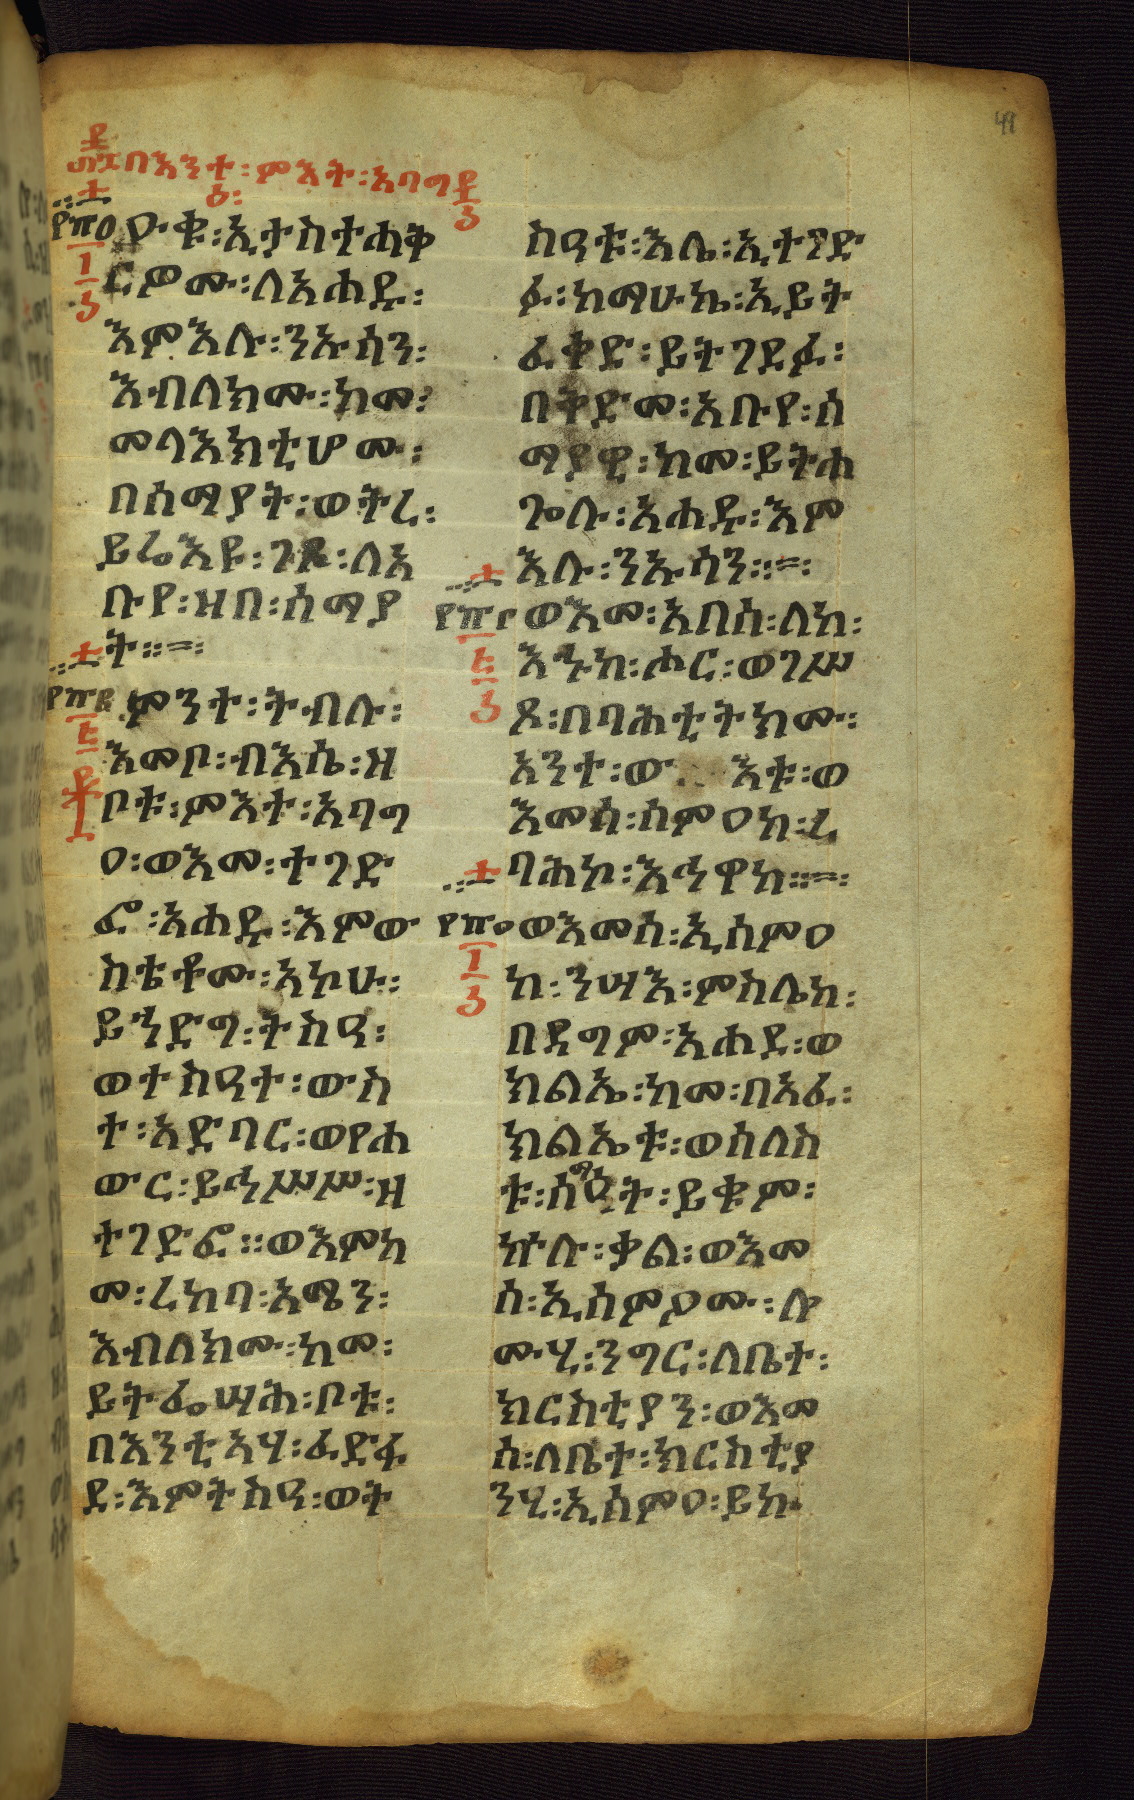 በእንተ፡ምእት፡አባግዕ፡
ዑቁ፡ኢታስተሐቅ
ርዎሙ፡ለአሐዱ፡
እምእሉ፡ንኡሳን፡
እብለክሙ፡ከመ፡
መላእክቲሆሙ፡
በሰማያት፡ወትረ፡
ይሬእዩ፡ገጾ፡ለአ
ቡየ፡ዘበ፡ሰማያ
ት።
ምንተ፡ትብሉ፡
እመቦ፡ብእሴ፡ዘ
ቦቱ፡ምእተ፡አባግ
ዐ፡ወእመ፡ተገድ
ፎ፡አሐዱ፡እምው
ስቴቶሙ፡አኮሁ፡
ይኀድግ፡ትስዓ፡
ወተስዓተ፡ውስ
ተ፡አድባር፡ወየሐ
ውር፡ይኅሥሥ፡ዘ
ተገድፎ፡፡ወእምከ
መ፡ረከባ፡አሜን፡
እብለክሙ፡ከመ፡
ይትፌሣሕ፡ቦቱ፡
በእንቲአሃ፡ፈድፋ
ደ፡እምትስዓ፡ወት
ስዓቱ፡እሌ፡ኢተገድ
ፉ፡ከማሁኬ፡ኢይት
ፈቀድ፡ይትገደፉ፡
በቅድመ፡አቡየ፡ሰ
ማያዊ፡ከመ፡ይትሐ
ጐሉ፡አሐዱ፡እም
እሉ፡ንኡሳን።
ወእመ፡አበሰ፡ለከ፡
እኁከ፡ሖር፡ወገሥ
ጾ፡በባሕቲትክሙ፡
አንተ፡ው እቱ፡ወ
እመሰ፡ሰምዐከ፡ረ
ባሕኮ፡እኅዋከ።
ወእመሰ፡ኢሰምዐ
ከ፡ንሣእ፡ምስሌከ፡
በዳግም፡አሐደ፡ወ
ክልኤ፡ከመ፡በአፈ፡
ክልኤቱ፡ወሰለስ
ቱ፡ሰማዕት፡ይቁም፡
ኵሉ፡ቃል፡ወእመ
ሰ፡ኢሰምዖሙ፡ሎ
ሙሂ፡ንግር፡ለቤተ፡
ክርስቲያን፡ወእመ
ሰ፡ለቤተ፡ክርስቲያ
ንሂ፡ኢሰምዐ፡ይኩ